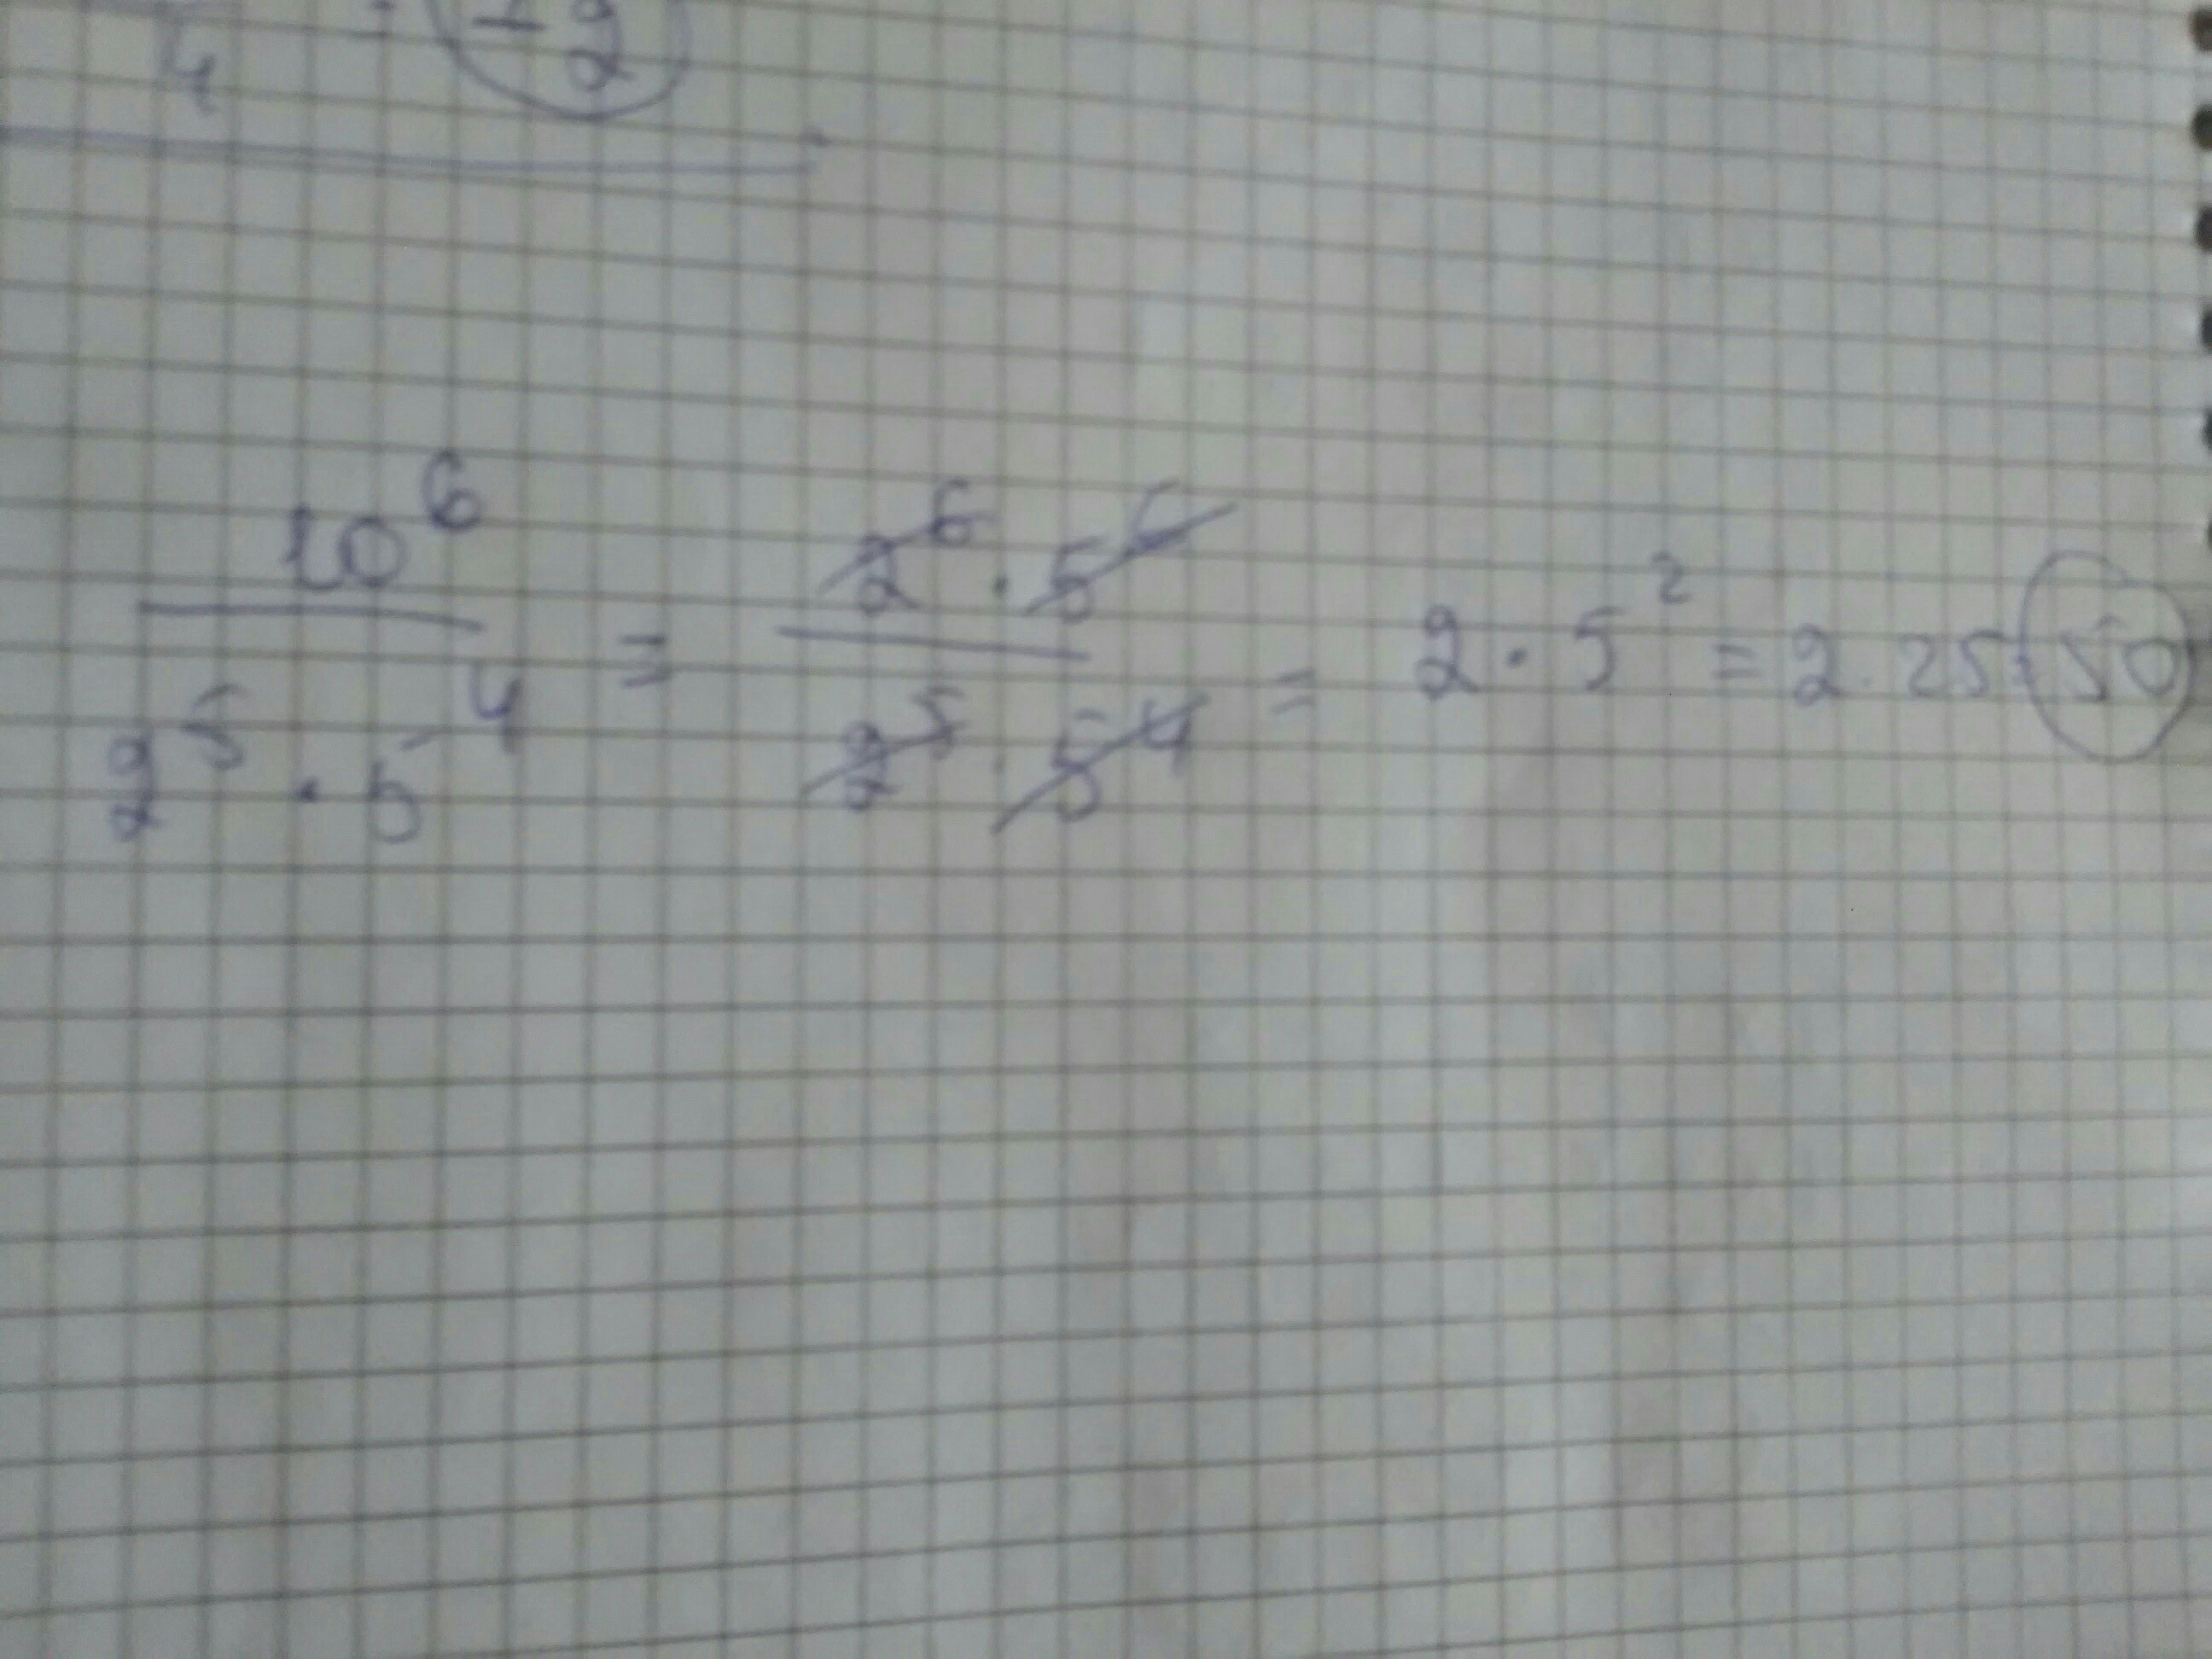 4 = 12
10⁶ / 2⁵ · 5⁴ = 2⁶ · 5⁶ / 2⁵ · 5⁴ = 2 · 5² = 2 · 25 = 50